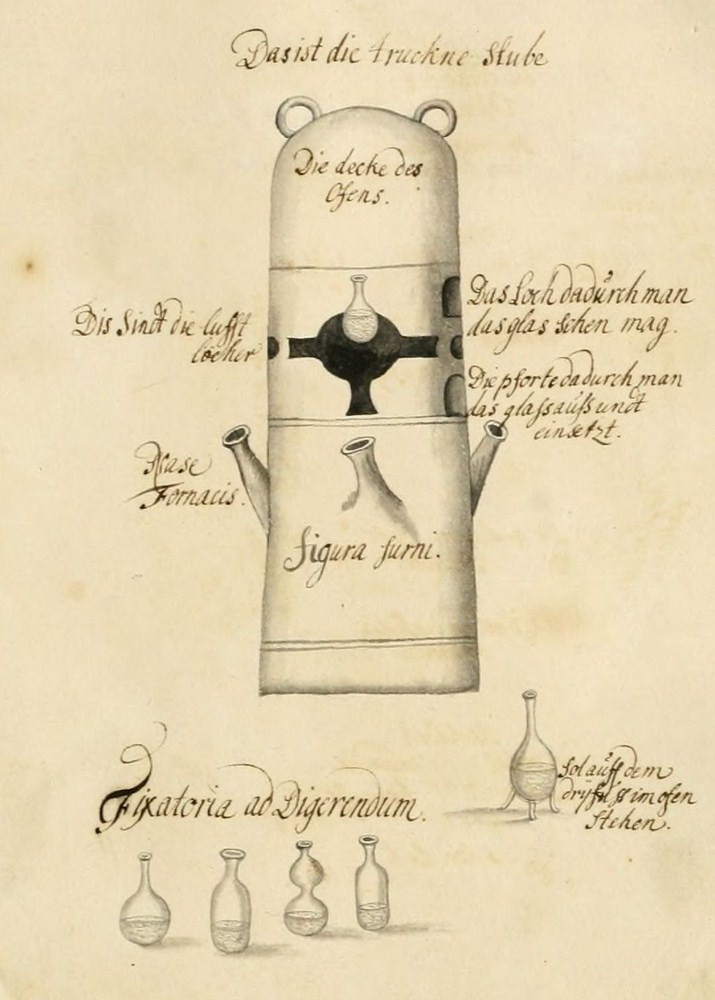 Das ist die truckne Stube
Die decke des
Ofens.
Das Loch dadurch man
das glas sehen mag.
Dis Sindt die lufft
löcher
Die pforte dadurch man
das glass auss undt
einsetzt.
Nase
Fornacis.
figura furni.
Sol auff dem
dryfuss im ofen
Stehen.
Fixatoria ad Digerendum.